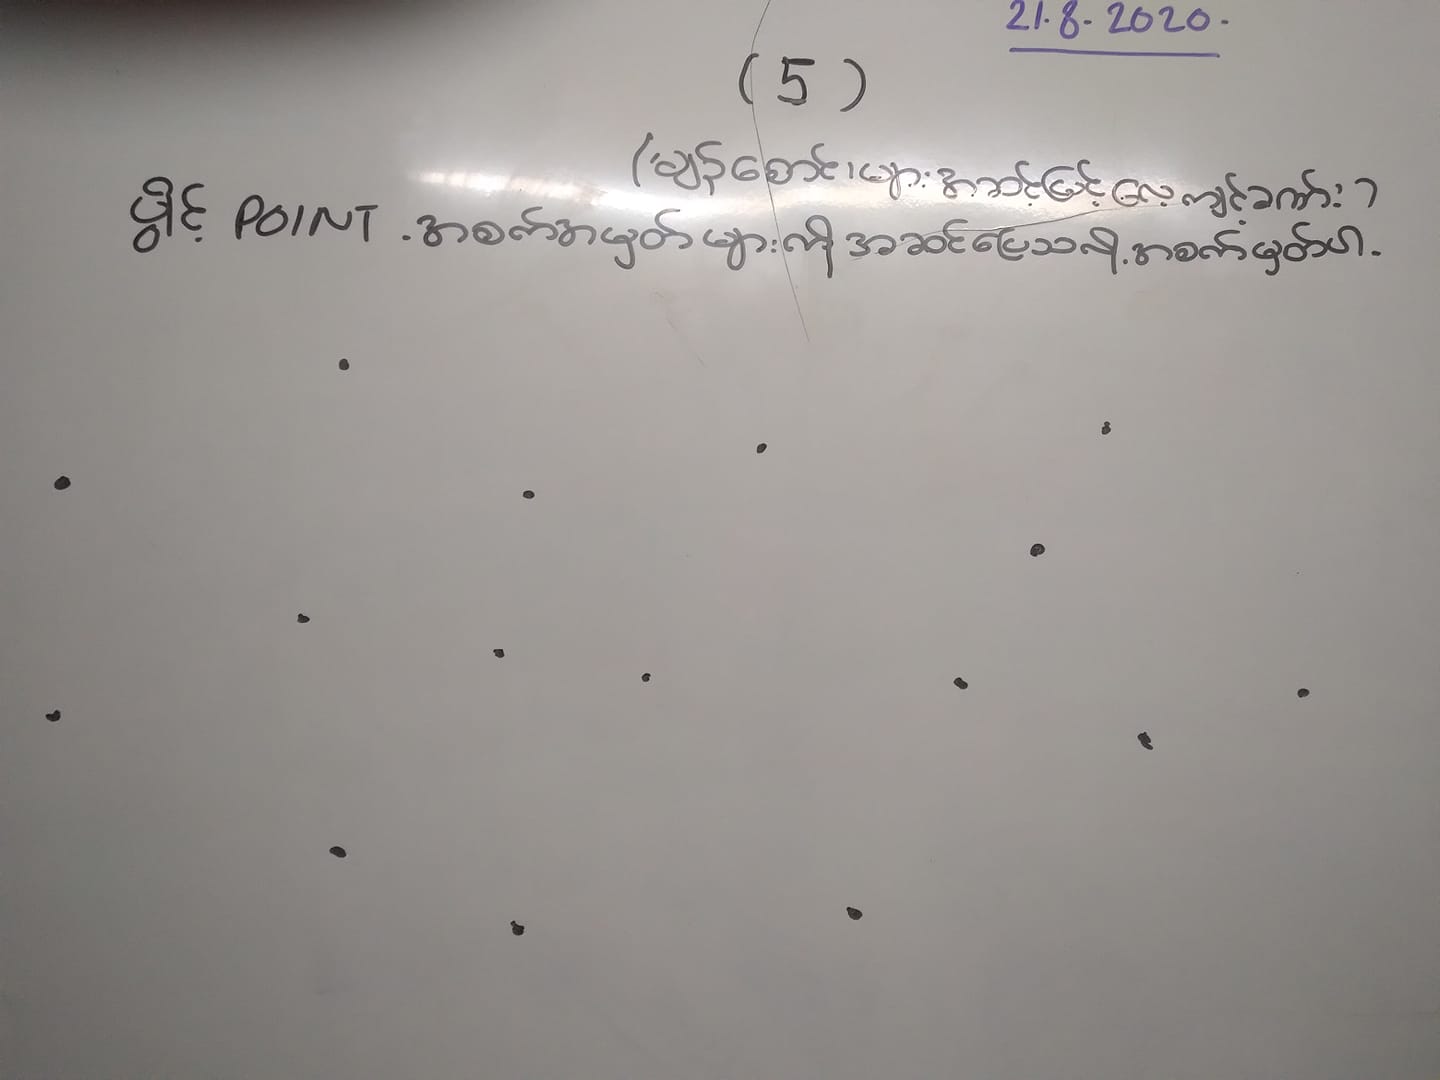 21.8.2020.
(5)
(ချဉ်စောင်းများ အဆင့်မြင့်လေ့ကျင့်ခန်း)
ပွိုင့် POINT . အစက်အမှတ်များကို အဆင်ပြေသလို . အစက်မှတ်ပါ.